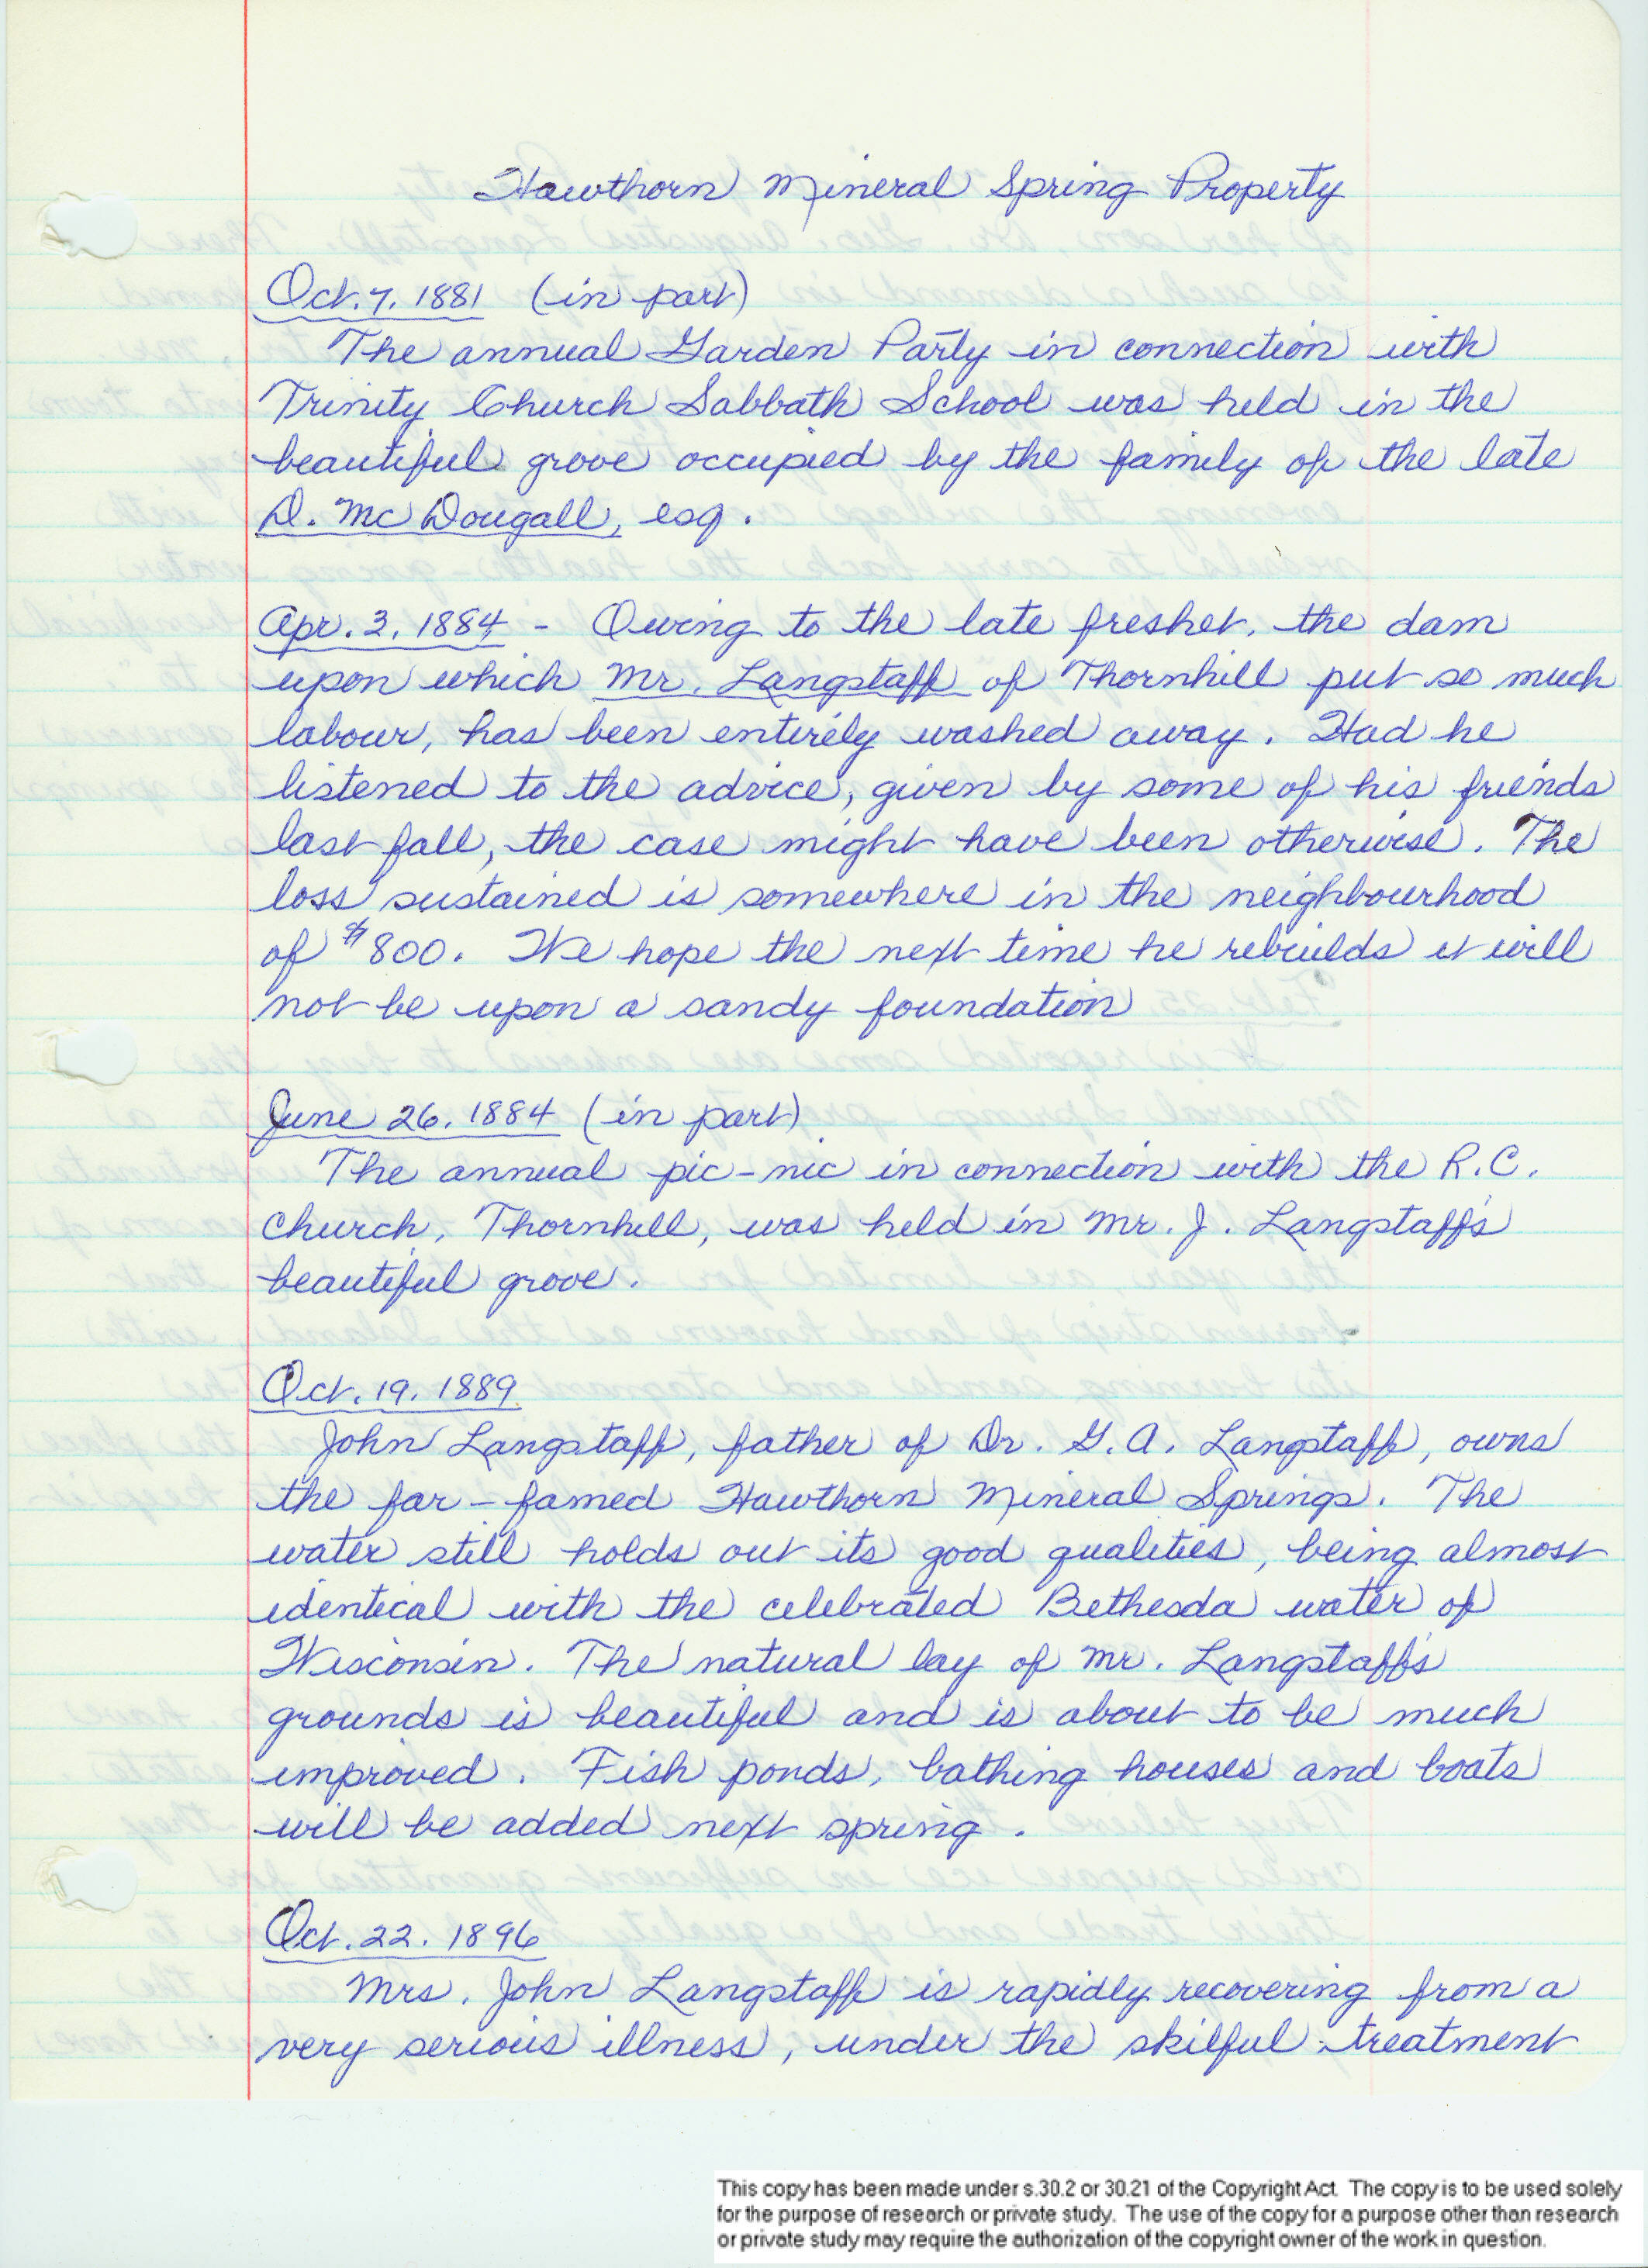 Hawthorn Mineral Spring Property
Oct. 7. 1881 (in part)
The annual Garden Party in connection with
Trinity Church Sabbath School was held in the
beautiful grove occupied by the family of the late
D. McDougall, esq.
Apr. 3. 1884 - Owing to the late freshet, the dam
upon which Mr. Langstaff of Thornhill put so much
labour, has been entirely washed away. Had he
listened to the advice, given by some of his friends
last fall, the case might have been otherwise. The
loss sustained is somewhere in the neighbourhood
of $800. We hope the next time he rebuilds it will
not be upon a sandy foundation
June 26. 1884 (in part)
The annual pic-nic in connection with the R.C.
Church, Thornhill, was held in Mr. J. Langstaff's
beautiful grove.
Oct. 19. 1889
John Langstaff, father of Dr. G. A. Langstaff, owns
the far-famed Hawthorn Mineral Springs. The
water still holds out its good qualities, being almost
identical with the celebrated Bethesda water of
Wisconsin. The natural lay of Mr. Langstaff's
grounds is beautiful and is about to be much
improved. Fish ponds, bathing houses and boats
will be added next spring.
Oct. 22. 1896
Mrs. John Langstaff is rapidly recovering from a
very serious illness, under the skilful treatment
This copy has been made under s.30.2 or 30.21 of the Copyright Act. The copy is to be used solely
for the purpose of research or private study. The use of the copy for a purpose other than research
or private study may require the authorization of the copyright owner of the work in question.